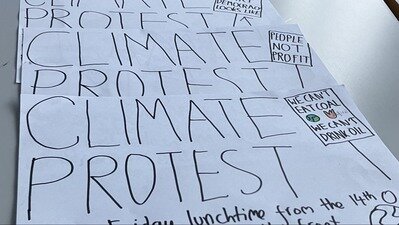 CLIMATE
PROTEST
DEMOCRACY
LOOKS LIKE
CLIMATE
PROTEST
PEOPLE
NOT
PROFIT
CLIMATE
PROTEST
WE CAN'T
EAT COAL
WE CAN'T
DRINK OIL
Friday lunchtime from the 14th
front